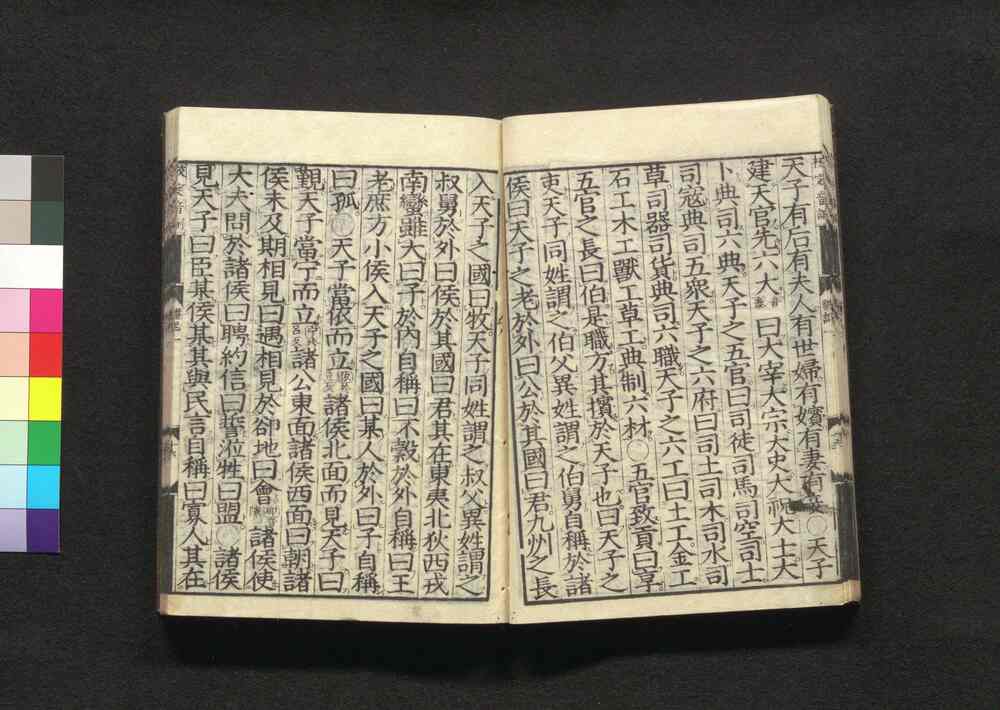 天子有后有夫人有世婦有嬪有妻有妾○天子
建天官先六大曰大宰大宗大史大祝大士大
卜典司六典天子之五官曰司徒司馬司空司士
司寇典司五衆天子之六府曰司土司木司水司
草司器司貨典司六職天子之六工曰土工金工
石工木工獸工草工典制六材○五官致貢曰享
五官之長曰伯是職方其擯於天子也曰天子之
吏天子同姓謂之伯父異姓謂之伯舅自稱於諸
侯曰天子之老於外曰公於其國曰君九州之長
入天子之國曰牧天子同姓謂之叔父異姓謂之
叔舅於外曰侯於其國曰君其在東夷北狄西戎
南蠻雖大曰子於內自稱曰不穀於外自稱曰王
老庶方小侯入天子之國曰某人於外曰子自稱
曰孤○天子當依而立諸侯北面而見天子曰
覲天子當宁而立諸公東面諸侯西面曰朝諸
侯未及期相見曰遇相見於郤地曰會諸侯使
大夫問於諸侯曰聘約信曰誓涖牲曰盟○諸侯
見天子曰臣某侯某其與民言自稱曰寡人其在